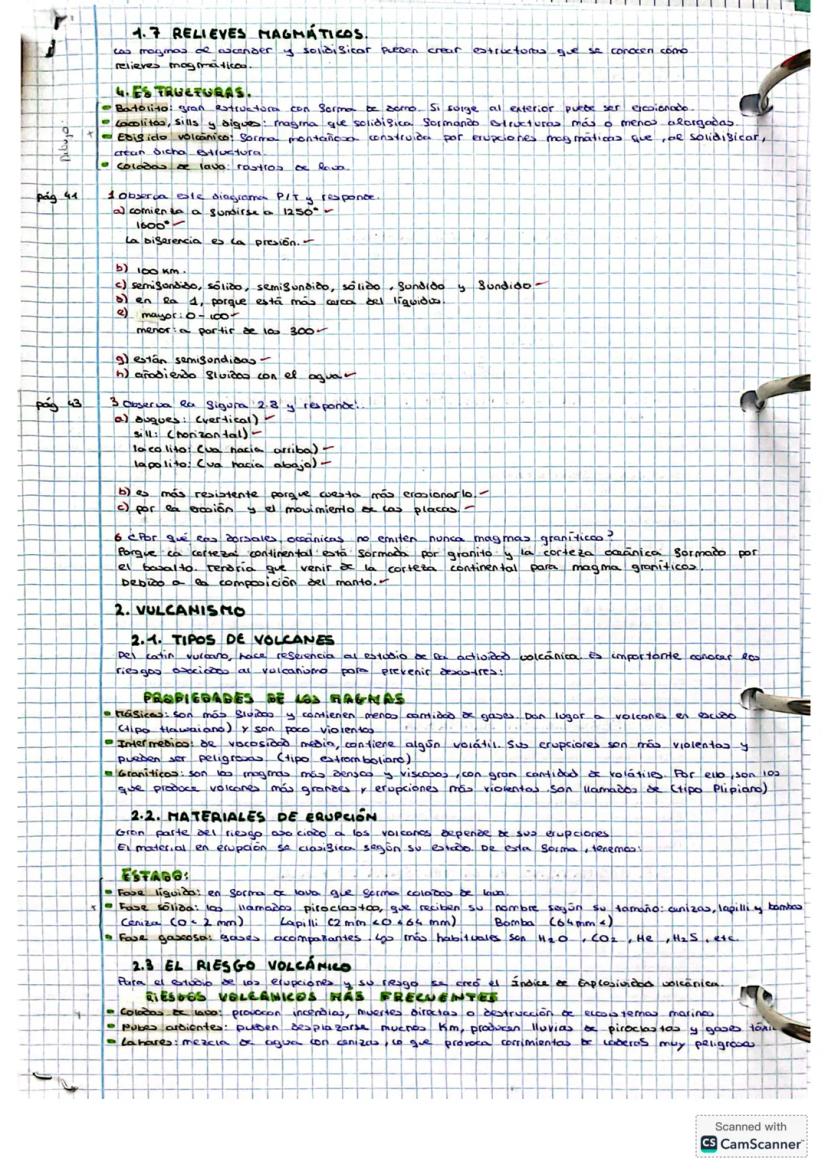 1.7 RELIEVES MAGMÁTICOS.
Los magmas al ascender y solidificar pueden crear estructuras que se conocen como
relieves magmáticos.
4. ESTRUCTURAS.
Batolito: gran estructura con forma de domo. Si surge al exterior puede ser erosionado.
Lacolitos, sills y diques: magma que solidifica formando estructuras más o menos alargadas.
Dibujo.
Edificio volcánico: forma montañosa construida por erupciones magmáticas que, al solidificar,
crean dicha estructura.
Coladas de lava: rastros de lava.
pág 41
1 Observa este diagrama P/T y responde.
a) comienza a fundirse a 1250°
1600°
La diferencia es la presión.
b) 100 km.
c) semifundido, sólido, semifundido, sólido, fundido y fundido
d) en la 1, porque está más cerca del líquidus.
e) mayor: 0-100
menor: a partir de los 300
g) están semifundidas
h) añadiendo fluidos con el agua
pág 43
3 Observa la figura 2.8 y responde:
a) duques: (vertical)
sill: (horizontal)
lacolito: (va hacia arriba)
lapolito: (va hacia abajo)
b) es más resistente porque cuesta más erosionarlo.
c) por la erosión y el movimiento de las placas.
6 ¿Por qué las dorsales oceánicas no emiten nunca magmas graníticos?
Porque la corteza continental está formada por granito y la corteza oceánica formado por
el basalto. Tendría que venir de la corteza continental para magma graníticos.
Debido a la composición del manto.
2. VULCANISMO
2.1. TIPOS DE VOLCANES
Del latín vulcano, hace referencia al estudio de la actividad volcánica. Es importante conocer los
riesgos asociados al vulcanismo para prevenir desastres:
PROPIEDADES DE LOS MAGMAS
Máficos: son más fluidos y contienen menos cantidad de gases. Dan lugar a volcanes en escudo
(tipo Hawaiano) y son poco violentos
Intermedios: de viscosidad media, contiene algún volátil. Sus erupciones son más violentas y
pueden ser peligrosas (tipo estromboliano)
Graníticos: son los magmas más densos y viscosos, con gran cantidad de volátiles. Por ello, son los
que produce volcanes más grandes y erupciones más violentas. Son llamados de (tipo Plipiano)
2.2. MATERIALES DE ERUPCIÓN
Gran parte del riesgo asociado a los volcanes depende de sus erupciones
El material en erupción se clasifica según su estado. De esta forma, tenemos:
ESTADO:
Fase líquida: en forma de lava que forma coladas de lava.
Fase sólida: los llamados piroclastos, que reciben su nombre según su tamaño: cenizas, lapilli y bombas
Ceniza (0 < 2 mm) Lapilli (2 mm < 0 < 64 mm) Bomba (64mm <)
Fase gaseosa: gases acompañantes. Los más habituales son H2O, CO2, He, H2S, etc.
2.3 EL RIESGO VOLCÁNICO
Para el estudio de las erupciones y su riesgo se creó el índice de explosividad volcánica.
RIESGOS VOLCÁNICOS MÁS FRECUENTES
Coladas de lava: provocan incendios, muertes directas o destrucción de ecosistemas marinos
Nubes ardientes: pueden desplazarse muchos Km, producen lluvias de piroclastos y gases
Lahares: mezcla de agua con cenizas, lo que provoca corrimientos de laderas muy peligrosos
Scanned with
CS CamScanner